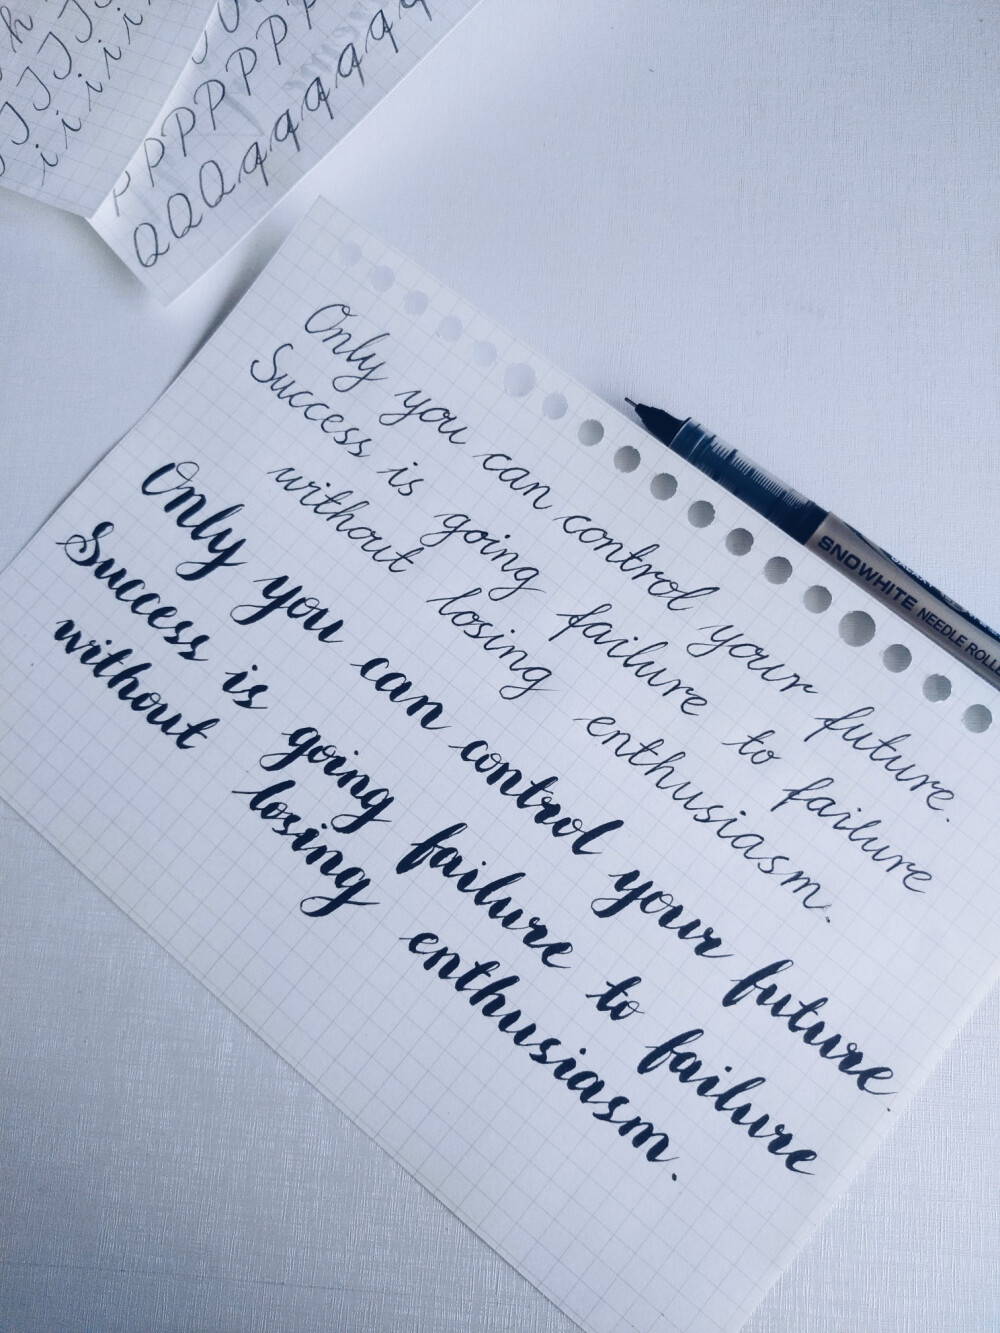 h
J J J J
i i i i i i
P P P P P P P
Q Q Q q q q q q q q
Only you can control your future.
Success is going failure to failure
without losing enthusiasm.
Only you can control your future.
Success is going failure to failure
without losing enthusiasm.
SNOWHITE NEEDLE